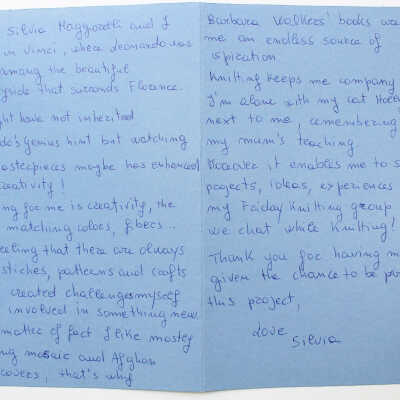 Silvia Maggiorelli and I
in Vinci, where Leonardo was
among the beautiful
yside that surrounds Florence.
ght have not inherited
do's genius hint but watching
masterpieces maybe has enhanced
creativity!
ng for me is creativity, the
matching colors, fibers...
eeling that there are always
stiches, patterns and crafts
created challenges myself
involved in something new.
matter of fact I like mostly
ng mosaic and Afghan
covers, that's why
Barbara Walkers' books are
me an endless source of
ispiration.
Knitting keeps me company
I'm alone with my cat
next to me, remembering
my mum's teaching.
Moreover it enables me to s
projects, ideas, experiences
my Friday Knitting group
we chat while Knitting!
Thank you for having m
given the chance to be pa
this project,
Love
Silvia